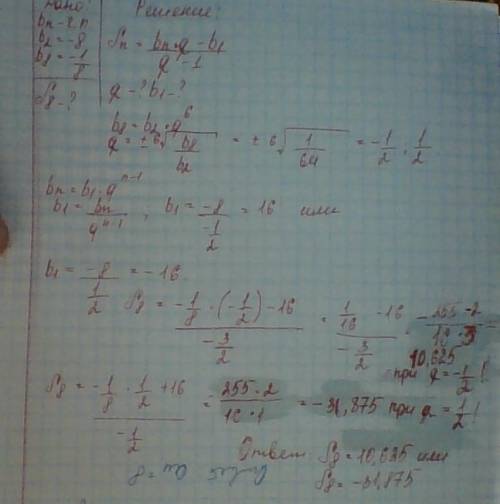 Дано:
bn - г.п.
b2 = -8
b8 = -1/8
S8 - ?
Решение:
Sn = (bn·q - b1)/(q - 1)
q - ? b1 - ?
b8 = b2·q^6
q = ± 6√(b8/b2) = ± 6√(1/64) = -1/2 , 1/2
bn = b1·q^(n-1)
b1 = bn/q^(n-1) ; b1 = -8/(-1/2) = 16 или
b1 = -8/(1/2) = -16
S8 = (-1/8·(-1/2) - 16)/(-3/2) = (1/16 - 16)/(-3/2) = -255·2/16·3 =
10,625
при q = -1/2 !
S8 = (-1/8·1/2 + 16)/(-1/2) = 255·2/16·1 = -31,875 при q = 1/2 !
Ответ: S8 = 10,625 или
S8 = -31,875